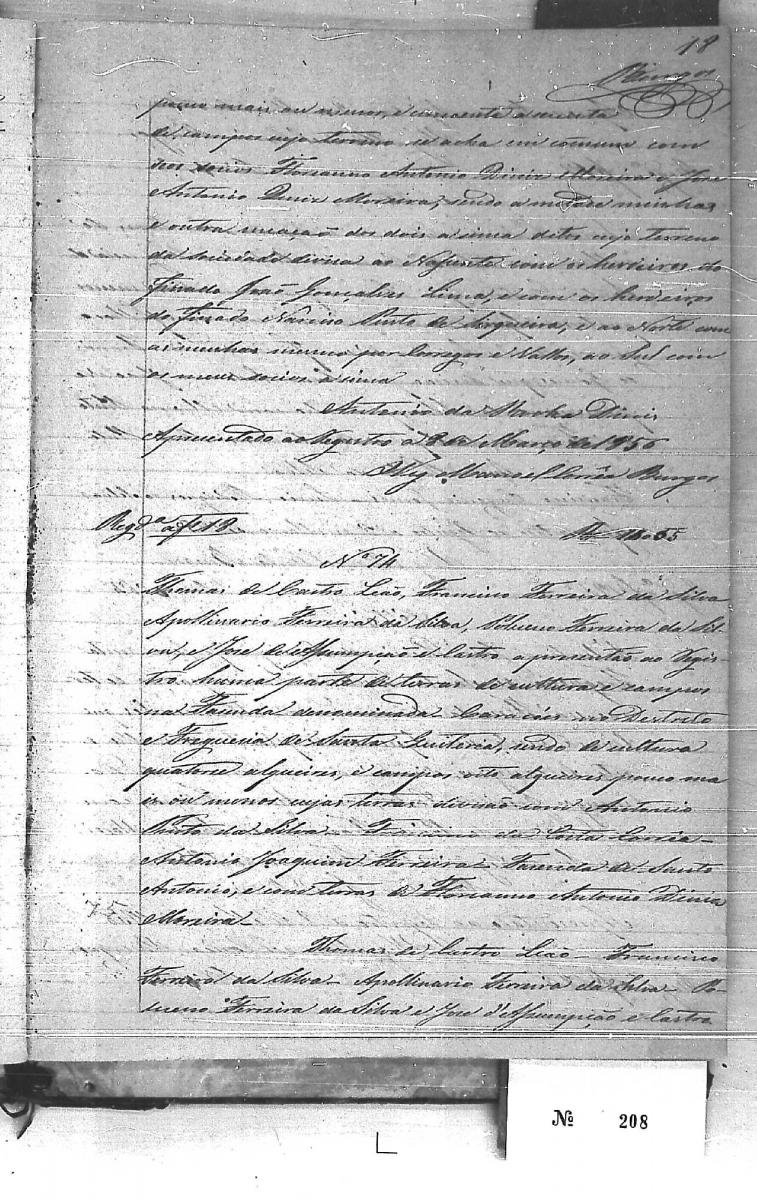 18
Burgos
pouco mais ou menos, e
de campos cujo terreno se acha em comum com
dos socios Florianno Antonio Diniz Moreira e Jose
Antonio Diniz Moreira, sendo a metade minha,
e outra meação dos dois a sima ditos cujo terreno
da sociedade divisa ao com os herdeiros do
Finado João Gonçalves Lima, e com os herdeiros
do finado Pinto de Siqueira, e ao Norte com
as minhas mesmo por Corregos e Vallos, ao Sul com
os meus socios a sima
Antonio da Rocha Diniz
Apresentado ao Registro a 8 de Março de 1856
Manoel Corrêa Burgos
Regda a fl 18
No 74
Thomas de Castro Leão, Francisco Ferreira da Silva
Apollinario Ferreira da Silva, Ferreira da Sil-
va, e Jose d'Assumpção e Castro apresentão ao Regis-
tro huma parte de terras de cultura e campos
na Fazenda denominada no Destricto
e Freguesia de Santa Quiteria, sendo de cultura
quatorze alqueires, e campos oito alqueires pouco ma
is ou menos cujas terras divisão com Antonio
Pinto da Silva - Francisco da Costa Corrêa -
Antonio Joaquim Ferreira - Fazenda de Santo
Antonio, e com terras de Florianno Antonio Diniz
Moreira -
Thomas de Castro Leão - Francisco
Ferreira da Silva - Apollinario Ferreira da Silva -
Ferreira da Silva e Jose d'Assumpção e Castro
No 208